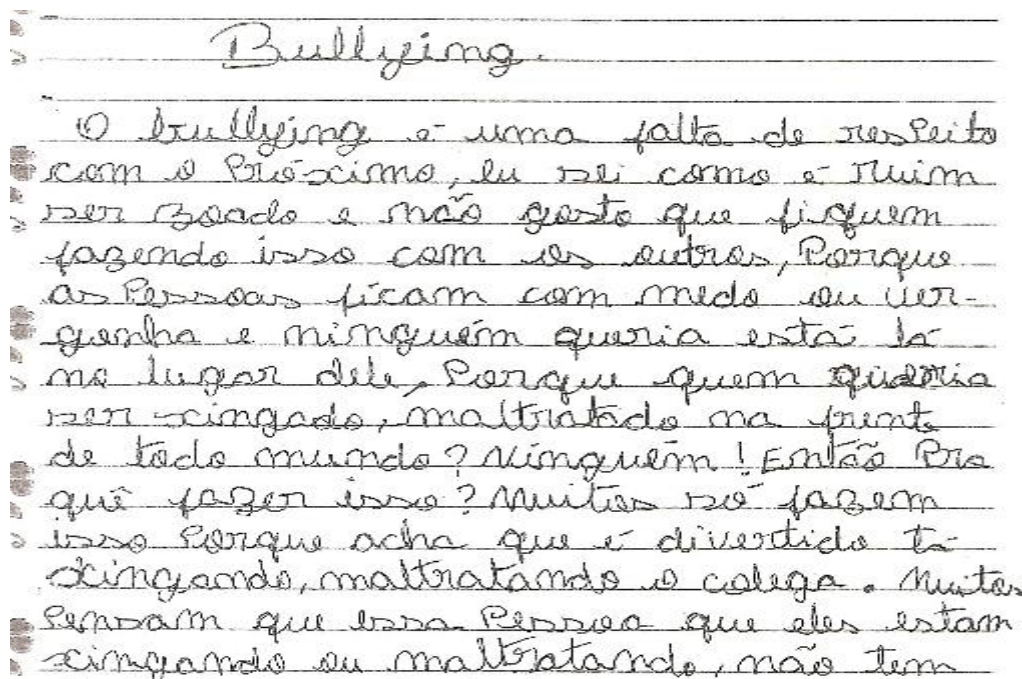 Bullyeing.
O bullyeing é uma falta de respeito
com o próximo, eu sei como é ruim
ser zoado e não gosto que fiquem
fazendo isso com os outros, Porque
as Pessoas ficam com medo ou ver-
gonha e ninguém queria está lá
no lugar dele, Porque quem queria
ser xingado, maltratado na frente
de todo mundo? Ninguém! Então Pra
quê fazer isso? Muitos só fazem
isso Porque acha que é divertido tá
xingando, maltratando o colega. Muitos
Pensam que essa Pessoa que eles estam
xingando ou maltratando, não tem